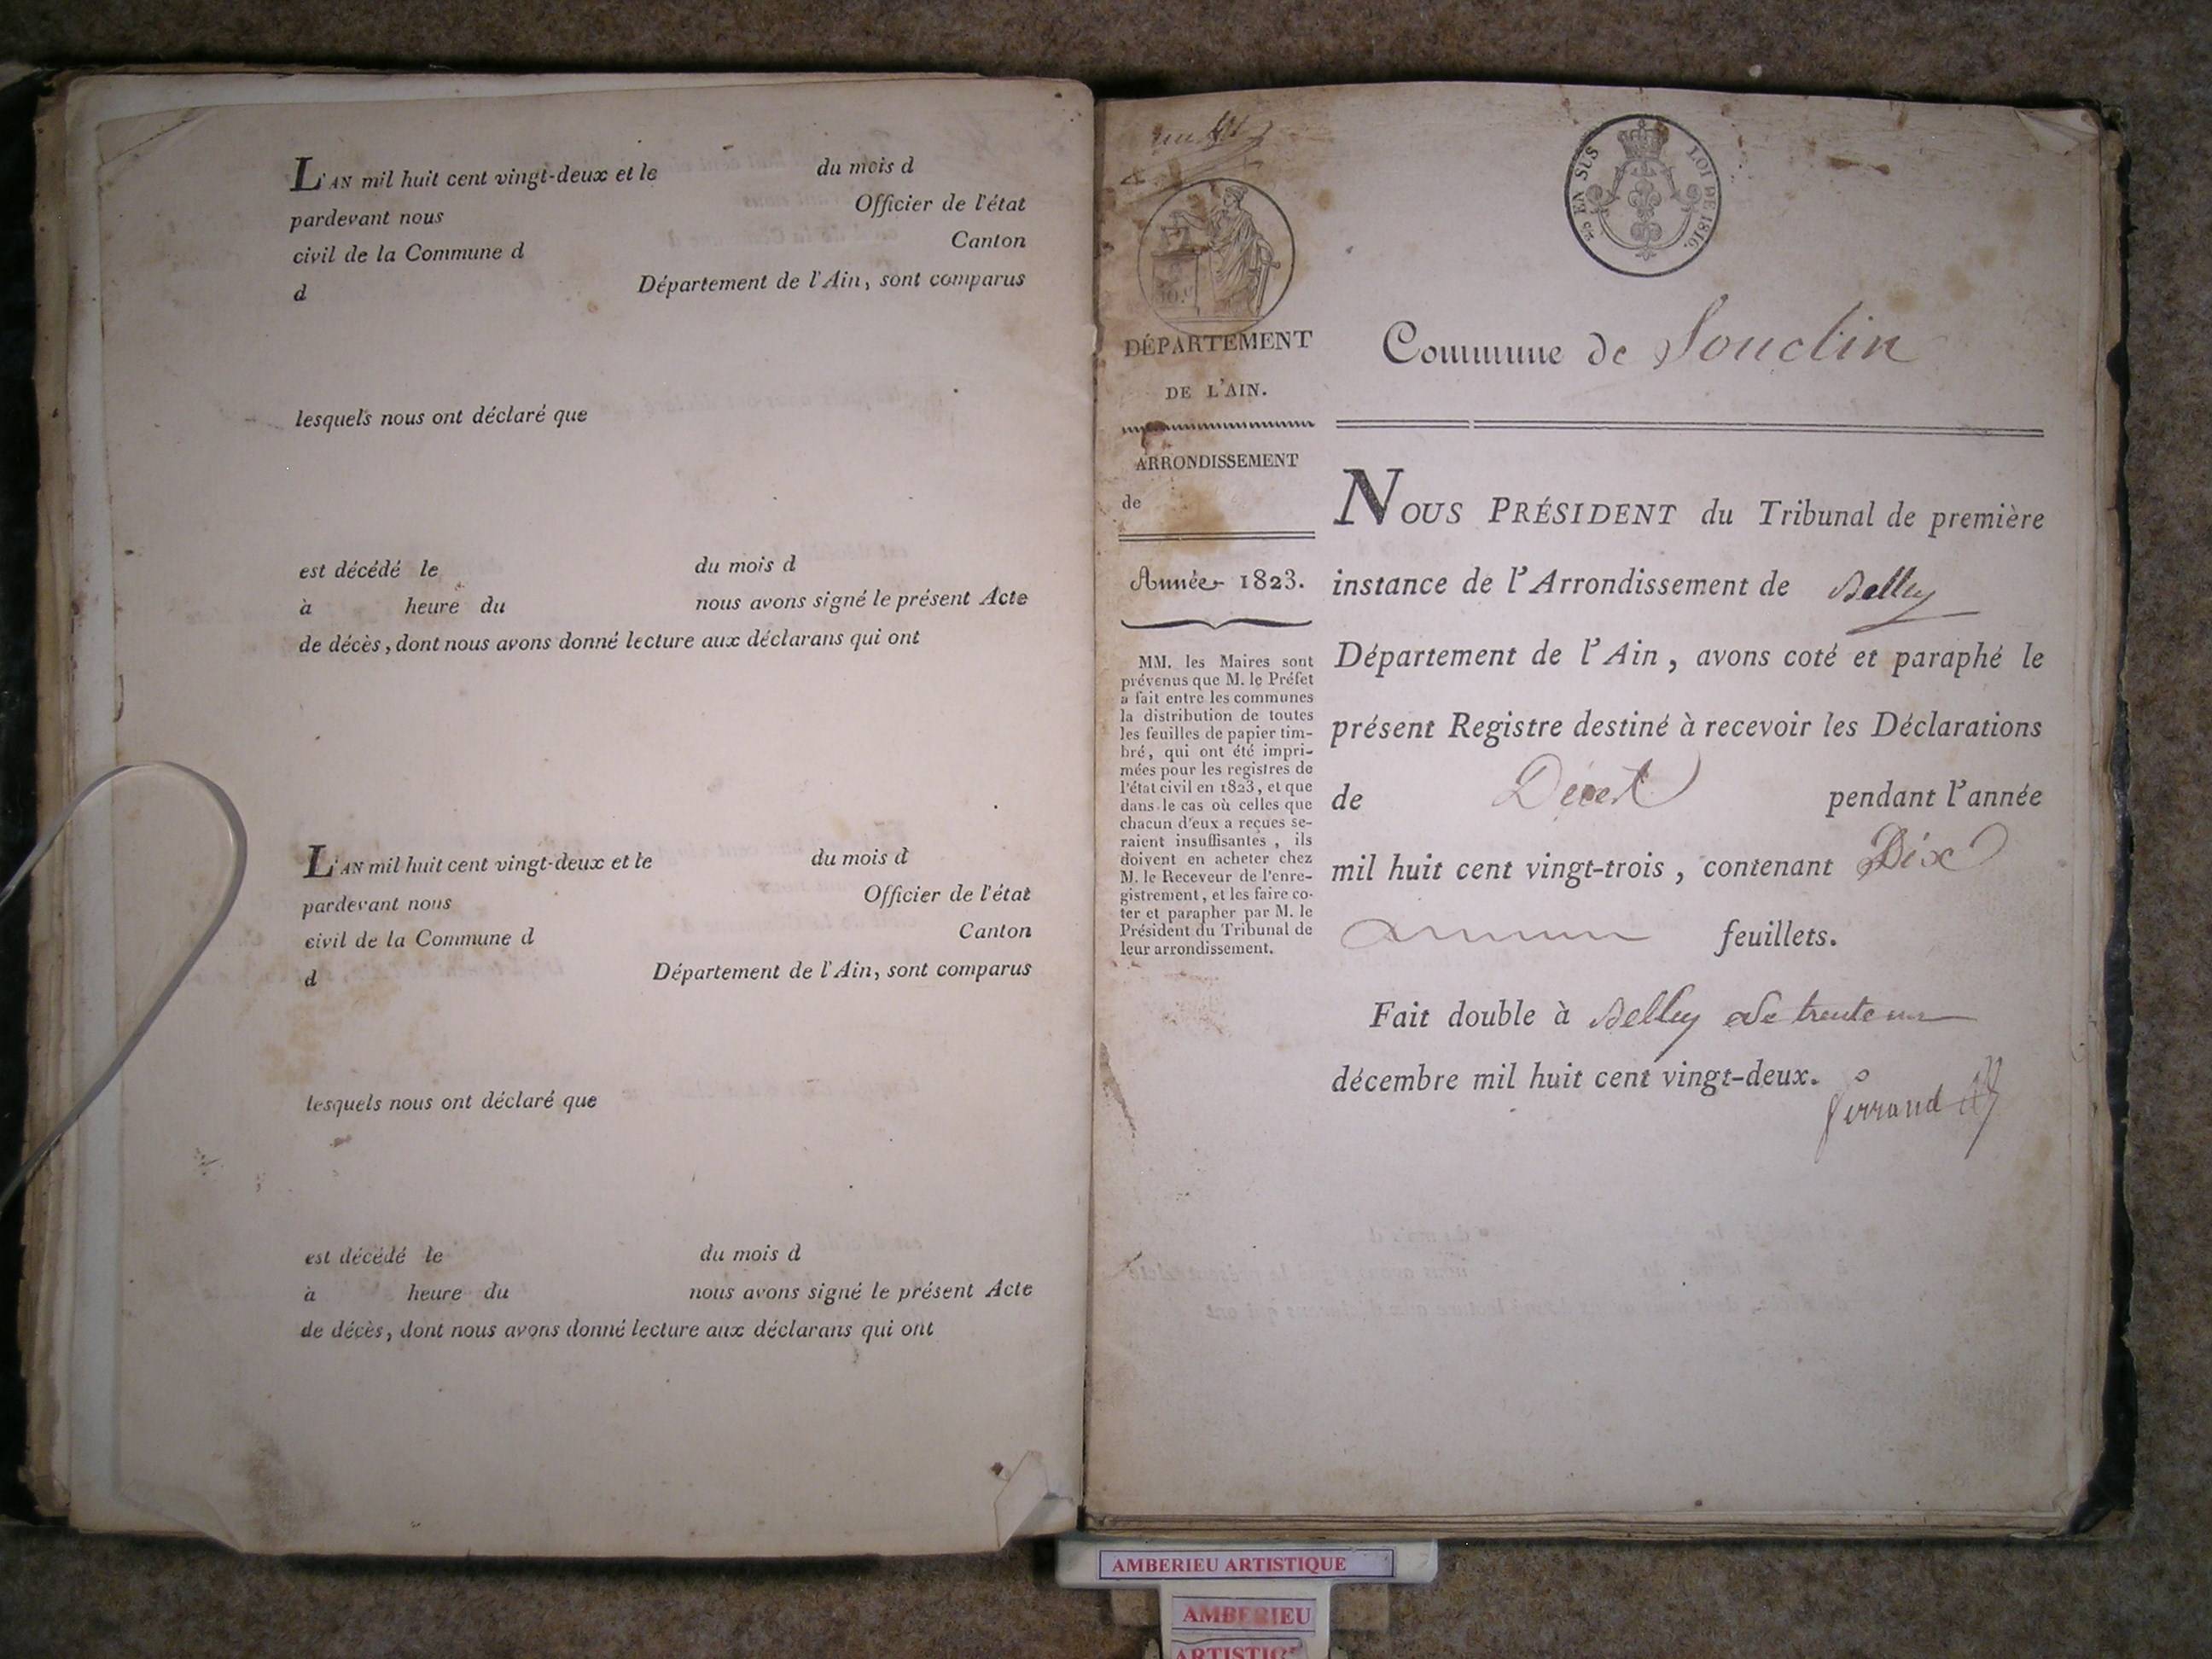 L'AN mil huit cent vingt-deux et le du mois d
pardevant nous Officier de l'état
civil de la Commune d Canton
d Département de l'Ain, sont comparus
lesquels nous ont déclaré que
est décédé le du mois d
à heure du nous avons signé le présent Acte
de décès, dont nous avons donné lecture aux déclarans qui ont
L'AN mil huit cent vingt-deux et le du mois d
pardevant nous Officier de l'état
civil de la Commune d Canton
d Département de l'Ain, sont comparus
lesquels nous ont déclaré que
est décédé le du mois d
à heure du nous avons signé le présent Acte
de décès, dont nous avons donné lecture aux déclarans qui ont
DÉPARTEMENT
DE L'AIN.
ARRONDISSEMENT
de
Année 1823.
MM. les Maires sont
prévenus que M. le Préfet
a fait entre les communes
la distribution de toutes
les feuilles de papier tim-
bré, qui ont été impri-
mées pour les registres de
l'état civil en 1823, et que
dans le cas où celles que
chacun d'eux a reçues se-
raient insuffisantes, ils
doivent en acheter chez
M. le Receveur de l'enre-
gistrement, et les faire co-
ter et parapher par M. le
Président du Tribunal de
leur arrondissement.
EN SUS LOI DE 1816.
Commune de Souclin
NOUS PRÉSIDENT du Tribunal de première
instance de l'Arrondissement de Belley
Département de l'Ain, avons coté et paraphé le
présent Registre destiné à recevoir les Déclarations
de Décès pendant l'année
mil huit cent vingt-trois, contenant Dix
feuillets.
Fait double à Belley le trente un
décembre mil huit cent vingt-deux.
AMBERIEU ARTISTIQUE
AMBERIEU
ARTISTIQUE